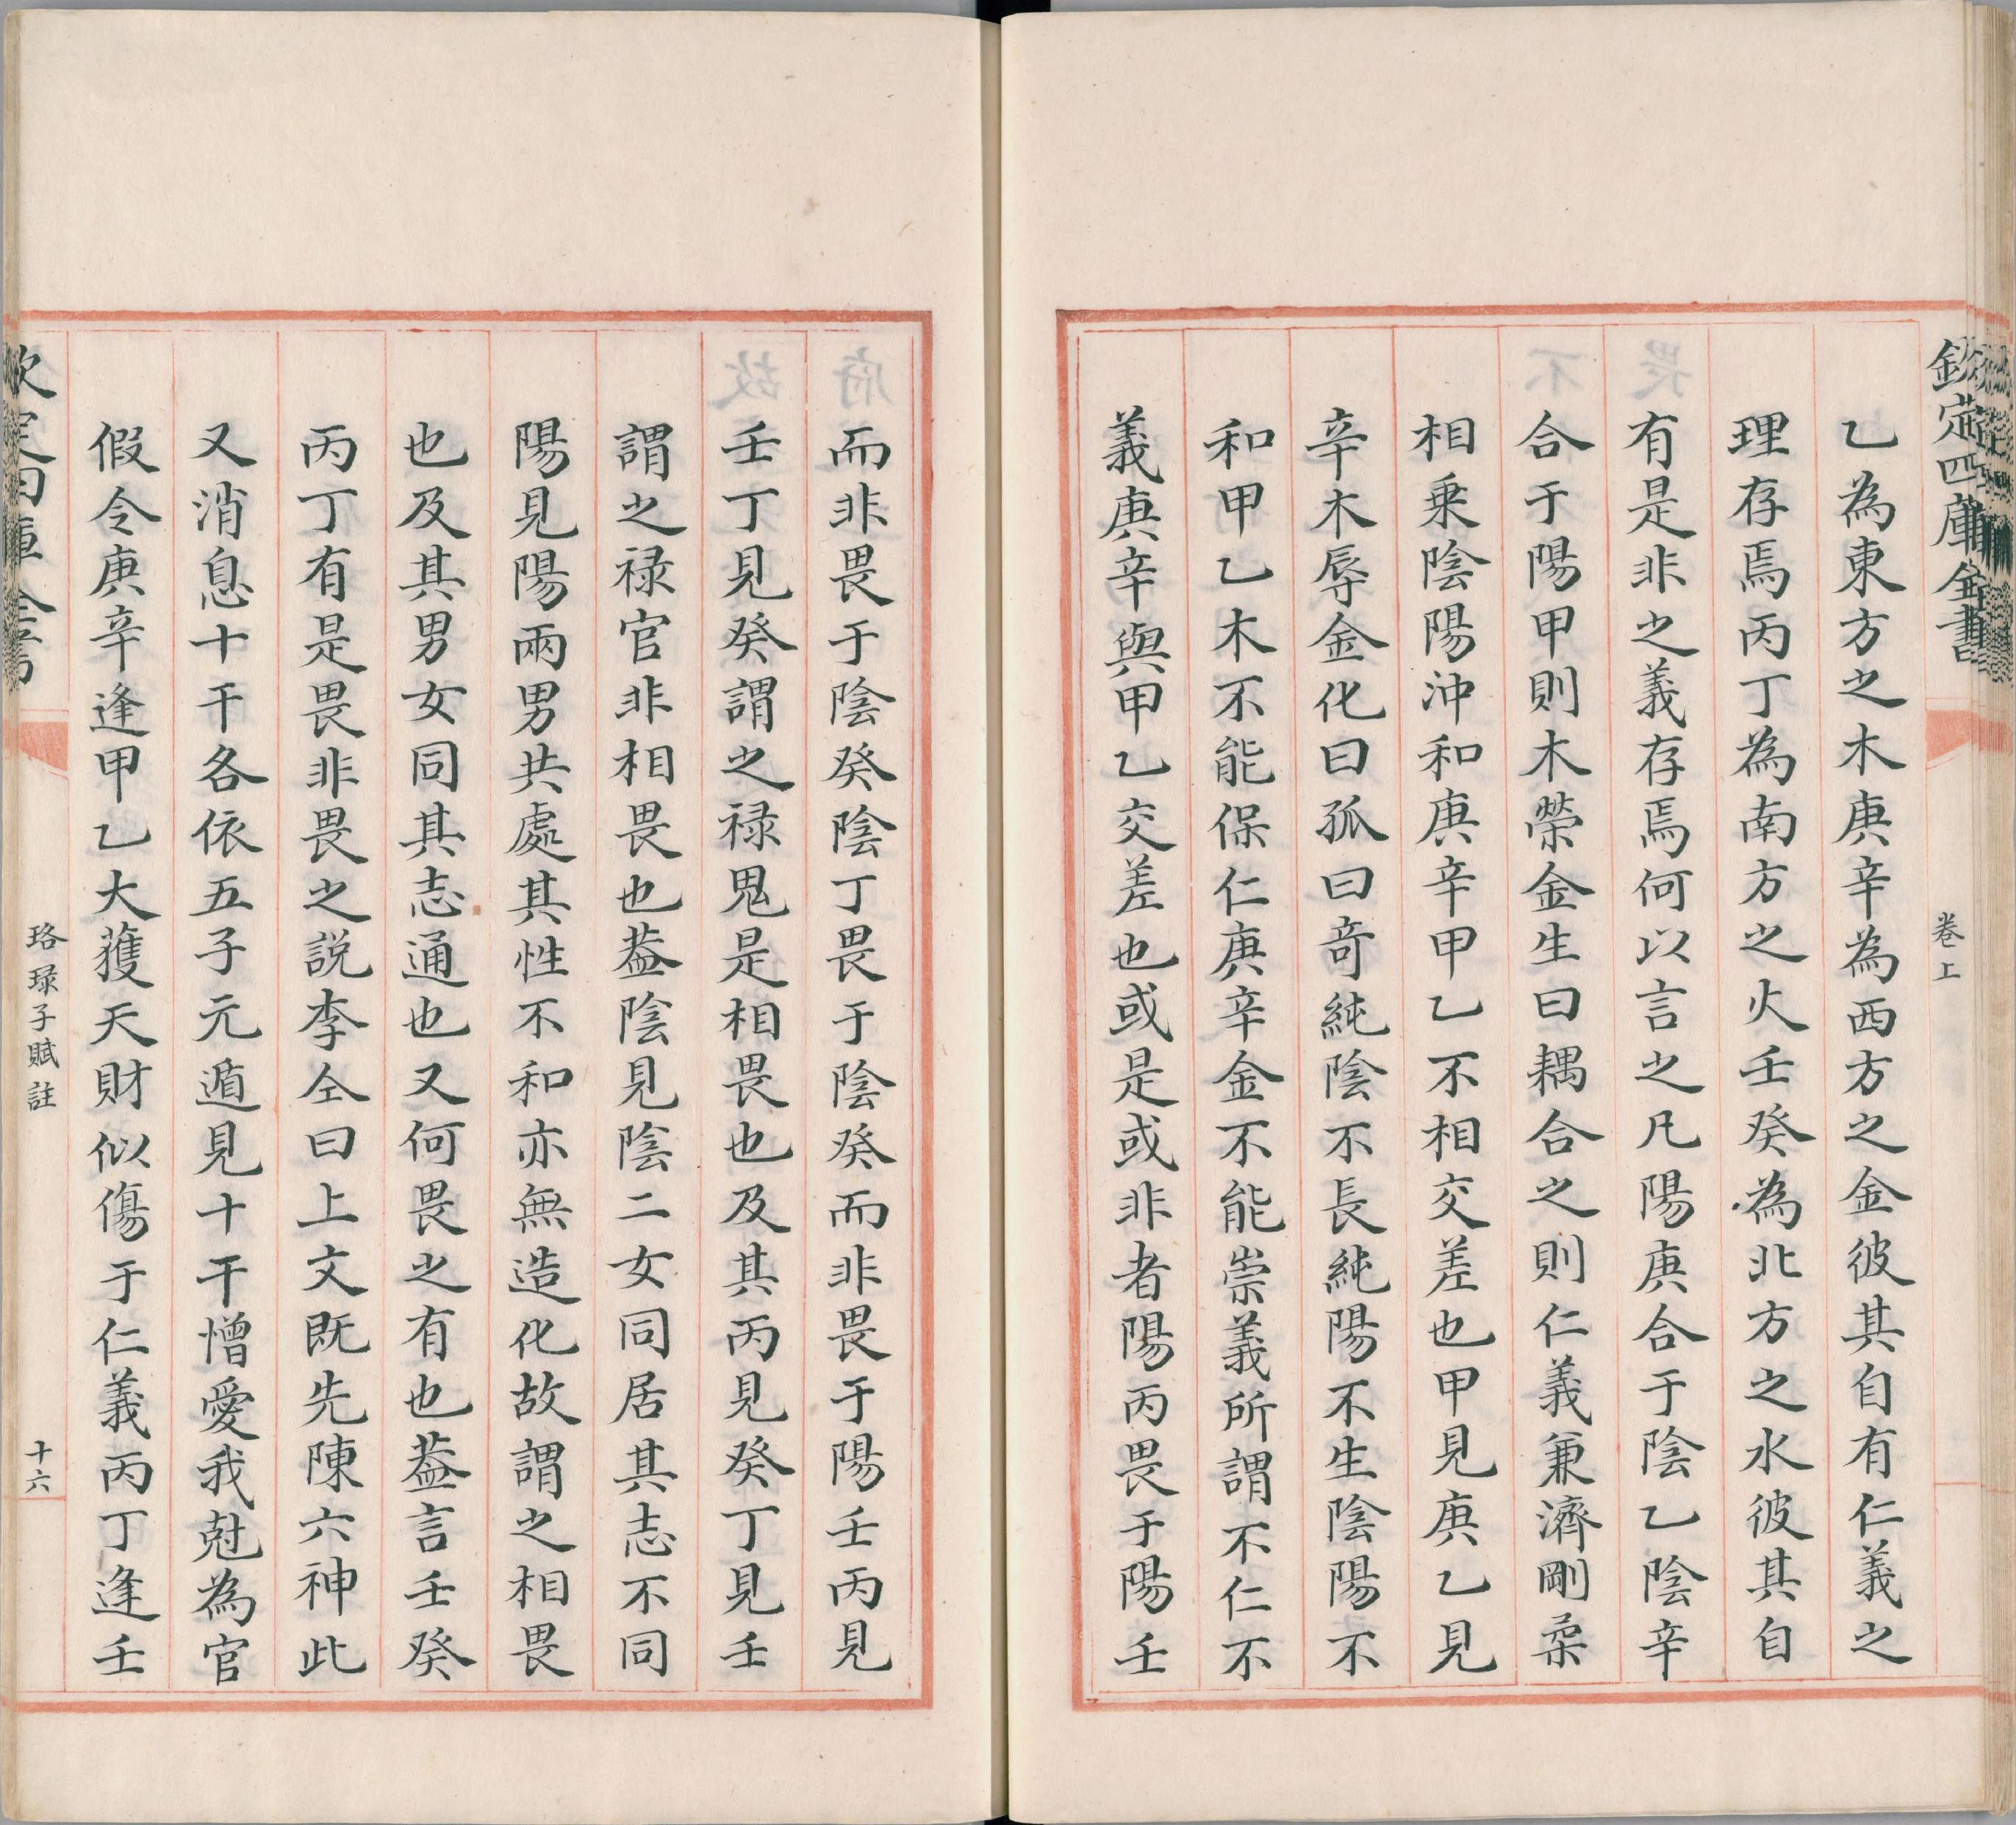 欽定四庫全書
卷上
乙為東方之木庚辛為西方之金彼其自有仁義之
理存焉丙丁為南方之火壬癸為北方之水彼其自
有是非之義存焉何以言之凡陽庚合于陰乙陰辛
合于陽甲則木榮金生曰耦合之則仁義兼濟剛柔
相乗陰陽沖和庚辛甲乙不相交差也甲見庚乙見
辛木辱金化曰孤曰竒純陰不長純陽不生陰陽不
和甲乙木不能保仁庚辛金不能崇義所謂不仁不
義庚辛與甲乙交差也或是或非者陽丙畏于陽壬
而非畏于陰癸陰丁畏于陰癸而非畏于陽壬丙見
壬丁見癸謂之禄鬼是相畏也及其丙見癸丁見壬
謂之禄官非相畏也葢陰見陰二女同居其志不同
陽見陽兩男共處其性不和亦無造化故謂之相畏
也及其男女同其志通也又何畏之有也葢言壬癸
丙丁有是畏非畏之説李仝曰上文既先陳六神此
又消息十干各依五子元遁見十干憎愛我尅為官
假令庚辛逢甲乙大獲天財似傷于仁義丙丁逢壬
欽定四庫全書
珞琭子賦註
十六